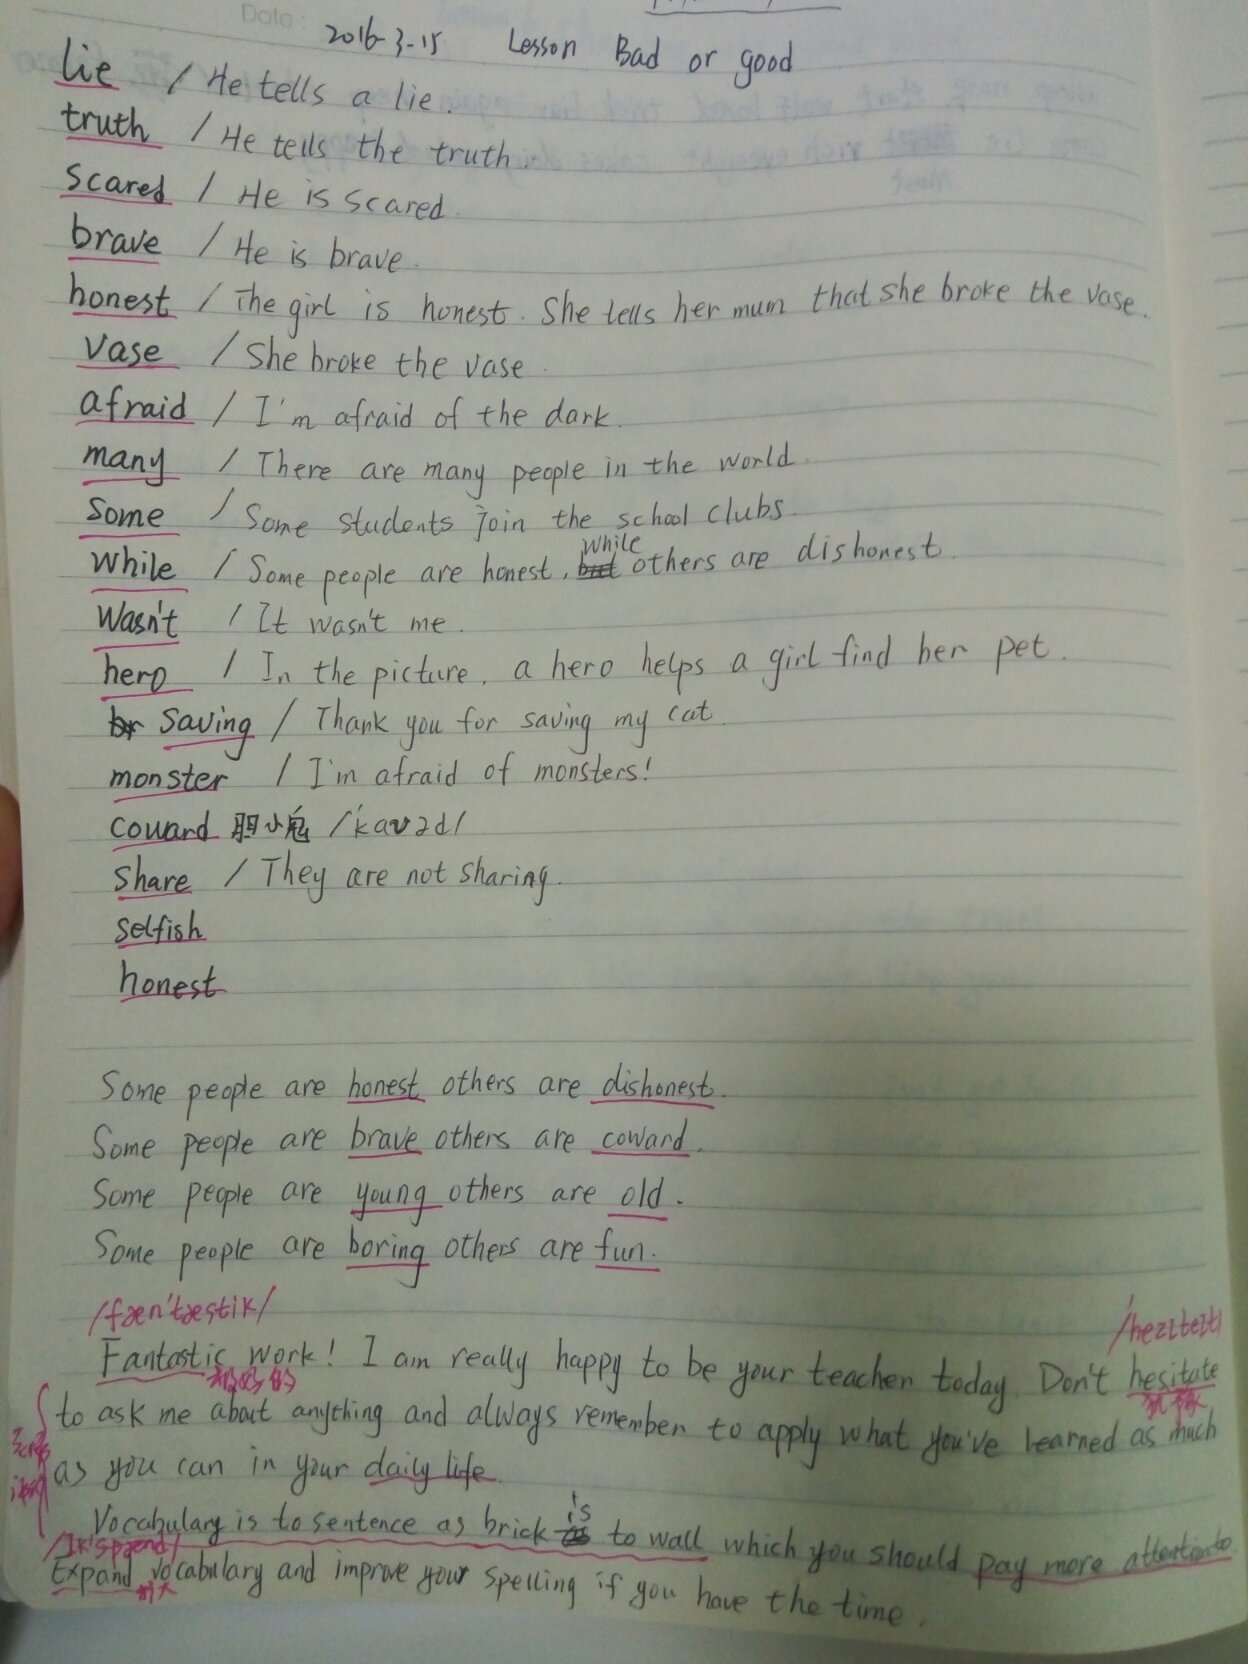 Date:
2016-3-15 Lesson Bad or good
lie / He tells a lie.
truth / He tells the truth.
scared / He is scared.
brave / He is brave.
honest / The girl is honest. She tells her mum that she broke the vase.
vase / She broke the vase.
afraid / I'm afraid of the dark.
many / There are many people in the world.
Some / Some students join the school clubs.
while
While / Some people are honest, but others are dishonest.
Wasn't / It wasn't me.
hero / In the picture, a hero helps a girl find her pet.
br saving / Thank you for saving my cat.
monster / I'm afraid of monsters!
coward 胆小鬼 /'kaʊəd/
share / They are not sharing.
selfish
honest
Some people are honest others are dishonest.
Some people are brave others are coward.
Some people are young others are old.
Some people are boring others are fun.
/fæn'tæstik/ /'hezɪteɪt/
Fantastic work! I am really happy to be your teacher today. Don't hesitate
to ask me about anything and always remember to apply what you've learned as much
as you can in your daily life.
is
Vocabulary is to sentence as brick as to wall which you should pay more attention to.
/Ik'spænd/
Expand vocabulary and improve your spelling if you have the time.
扩大